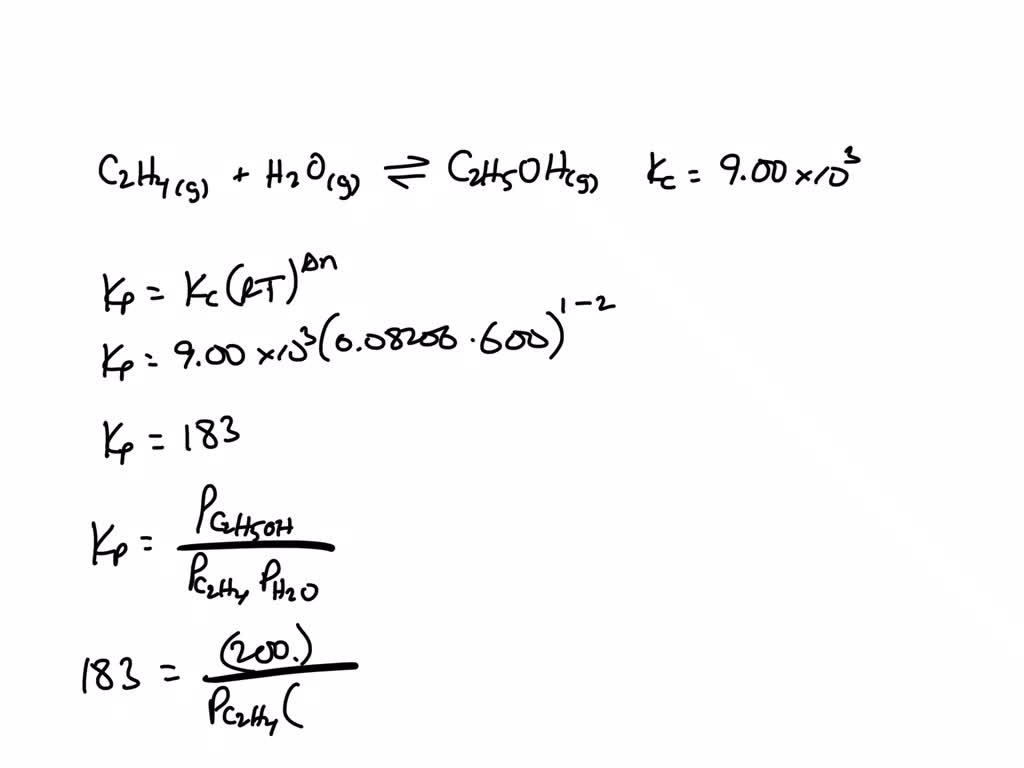 C₂H₄(g) + H₂O(g) ⇌ C₂H₅OH(g) Kc = 9.00 ×10³
Kp = Kc(RT)^Δn
Kp = 9.00 ×10³(0.08206 · 600)^1-2
Kp = 183
Kp = P_C₂H₅OH / P_C₂H₄ P_H₂O
183 = (200.) / P_C₂H₄ (